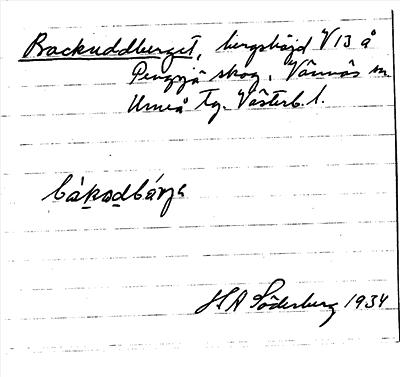 Backuddberget, bergshöjd V 13 å
Pengsjö skog, Vännäs sn
Umeå tg. Västerb. l.
bákodbárjə
HA Söderberg 1934